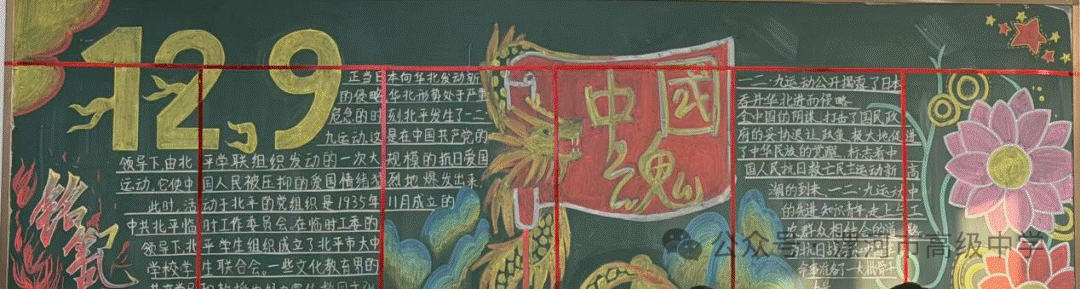 12.9
正当日本向华北发动新
的侵略,华北形势处于严重
危急的时刻北平发生了一二
九运动,这是在中国共产党的
领导下由北平学联组织发动的一次大规模的抗日爱国
运动,它使中国人民被压抑的爱国情绪猛烈地爆发出来.
此时,活动于北平的党组织是1935年11月成立的
中共北平临时工作委员会.在临时工委的
领导下,北平学生组织成立了北平市大中
学校学生联合会。一些文化教育界的
铭記
中國魂
一二·九运动公开揭露了日本
吞并华北进而侵略
全中国的阴谋,打击了国民政
府的妥协退让政策,极大地促进
了中华民族的觉醒,标志着中
国人民抗日救亡民主运动新高
潮的到来,一二·九运动中
的先进知识青年走上与工
农群众相结合的道路,
为抗日战
公众号 漯河市高级中学